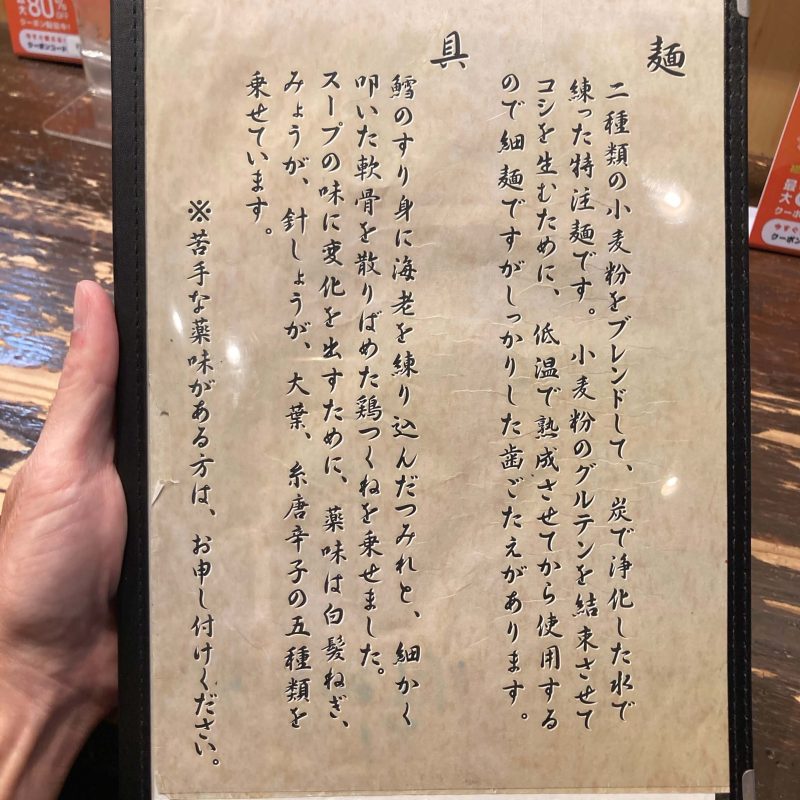 麺
二種類の小麦粉をブレンドして、炭で浄化した水で
練った特注麺です。小麦粉のグルテンを結束させて
コシを生むために、低温で熟成させてから使用する
ので細麺ですがしっかりした歯ごたえがあります。
具
鱈のすり身に海老を練り込んだつみれと、細かく
叩いた軟骨を散りばめた鶏つくねを乗せました。
スープの味に変化を出すために、薬味は白髪ねぎ、
みょうが、針しょうが、大葉、糸唐辛子の五種類を
乗せています。
※苦手な薬味がある方は、お申し付けください。
80%
OFF
クーポンコード
最
大